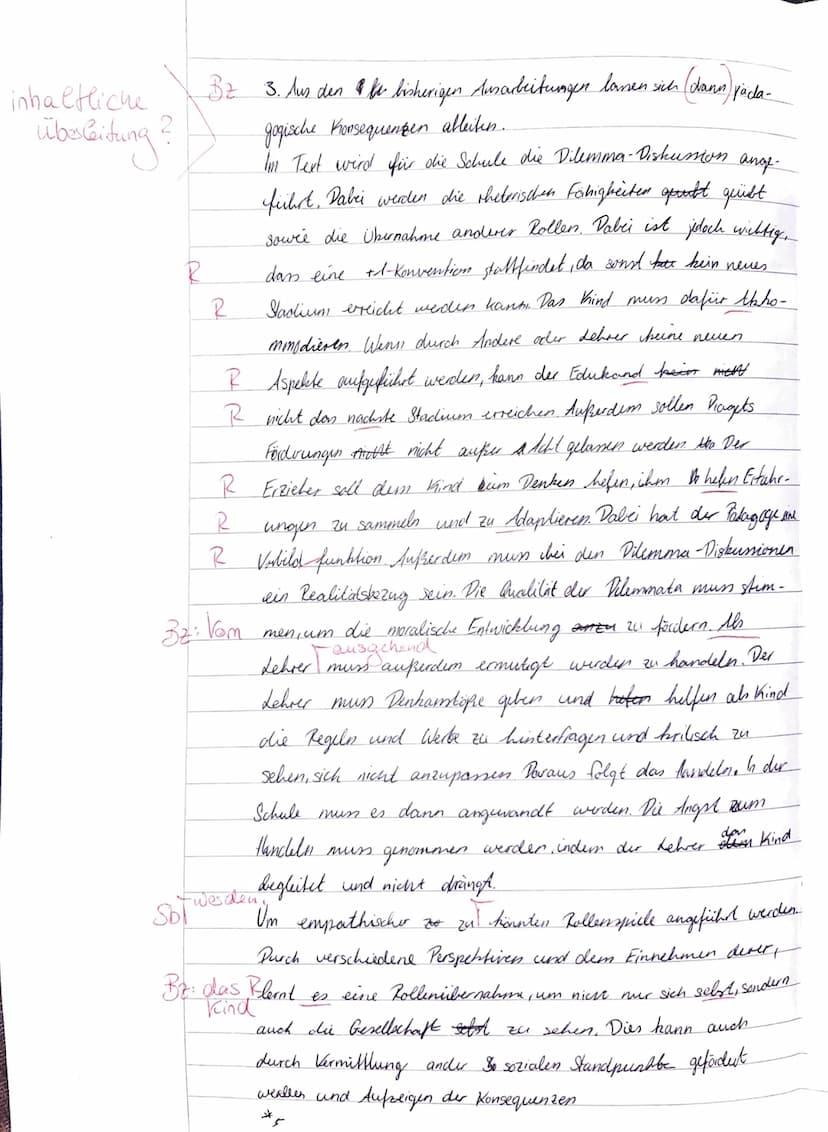 inhaltliche
Überleitung?
Bz 3. Aus den bisherigen Ausarbeitungen lassen sich (dann) päda-
gogische Konsequenzen alleiten.
Im Text wird für die Schule die Dilemma-Diskussion ange-
führt. Dabei werden die rhetorischen Fähigkeiten geübt
sowie die Übernahme anderer Rollen. Dabei ist jedoch wichtig,
R dass eine +1-Konvention stattfindet, da sonst kein neues
R Stadium erreicht werden kann. Das Kind muss dafür Akko-
mmodieren. Wenn durch Andere oder Lehrer keine neuen
R Aspekte aufgeführt werden, kann der Edukand
R nicht das nachste Stadium erreichen. Außerdem sollen Piagets
Förderungen nicht außer Acht gelassen werden. Der
R Erzieher soll dem Kind beim Denken helfen, ihm helfen Erfahr-
R ungen zu sammeln und zu Adaptieren. Dabei hat der Pädagoge eine
R Vorbild-funktion. Außerdem muss bei den Dilemma-Diskussionen
ein Realitätsbezug sein. Die Qualität der Dilemmata muss stim-
Bz: Vom men, um die moralische Entwicklung zu fördern. Als
ausgehend
Lehrer muss außerdem ermutigt werden zu handeln. Der
Lehrer muss Denkanstöße geben und helfen als Kind
die Regeln und Werte zu hinterfragen und kritisch zu
sehen, sich nicht anzupassen. Daraus folgt das Handeln. In der
Schule muss es dann angewandt werden. Die Angst zum
Handeln muss genommen werden, indem der Lehrer das Kind
begleitet und nicht drängt.
werden,
Sb Um empathischer zu könnten Rollenspiele angeführt werden.
Durch verschiedene Perspektiven und dem Einnehmen derer,
Bz: das Kind lernt es eine Rollenübernahme, um nicht nur sich selbst, sondern
auch die Gesellschaft zu sehen. Dies kann auch
durch Vermittlung ander sozialen Standpunkte gefördert
werden und Aufzeigen der Konsequenzen
*5